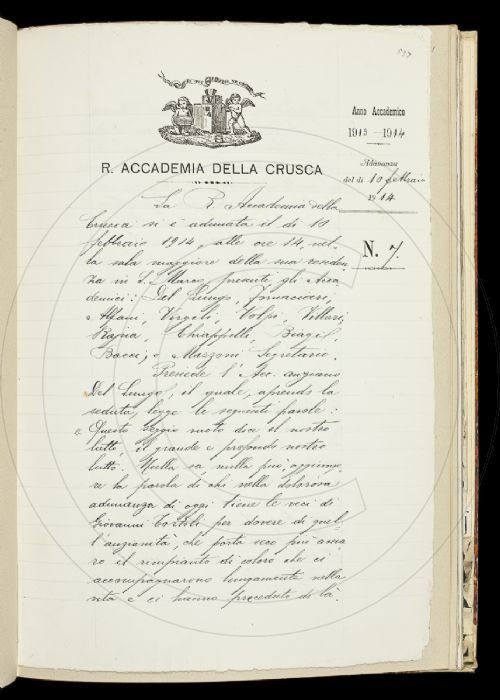 Anno Accademico
1913-1914
R. ACCADEMIA DELLA CRUSCA
Adunanza
del dì 10 febbraio
1914
N. 7.
La R. Accademia della
Crusca si è adunata il dì 10
febbraio 1914, alle ore 14, nel-
la sala maggiore della sua residen-
za in S. Marco, presenti gli Acca-
demici: Del Lungo, Tortoli,
Alfani, Virgili, Volpi, Villari,
Rajna, Chiappelli, Biagi,
Bacci, e Mazzoni Segretario.
Presiede l'Acc. anziano
Del Lungo, il quale, aprendo la
seduta, legge le seguenti parole:
"Questo seggio vuoto dice il nostro
lutto, il grande e profondo nostro
lutto. Nulla sa, nulla può, aggiunge-
re la parola di chi nella dolorosa
adunanza di oggi tiene le veci di
Giovanni Tortoli per dovere di quel-
l'anzianità, che porta seco più ama-
ro il rimpianto di coloro che ci
accompagnarono lungamente nella
vita e ci hanno preceduto di là.